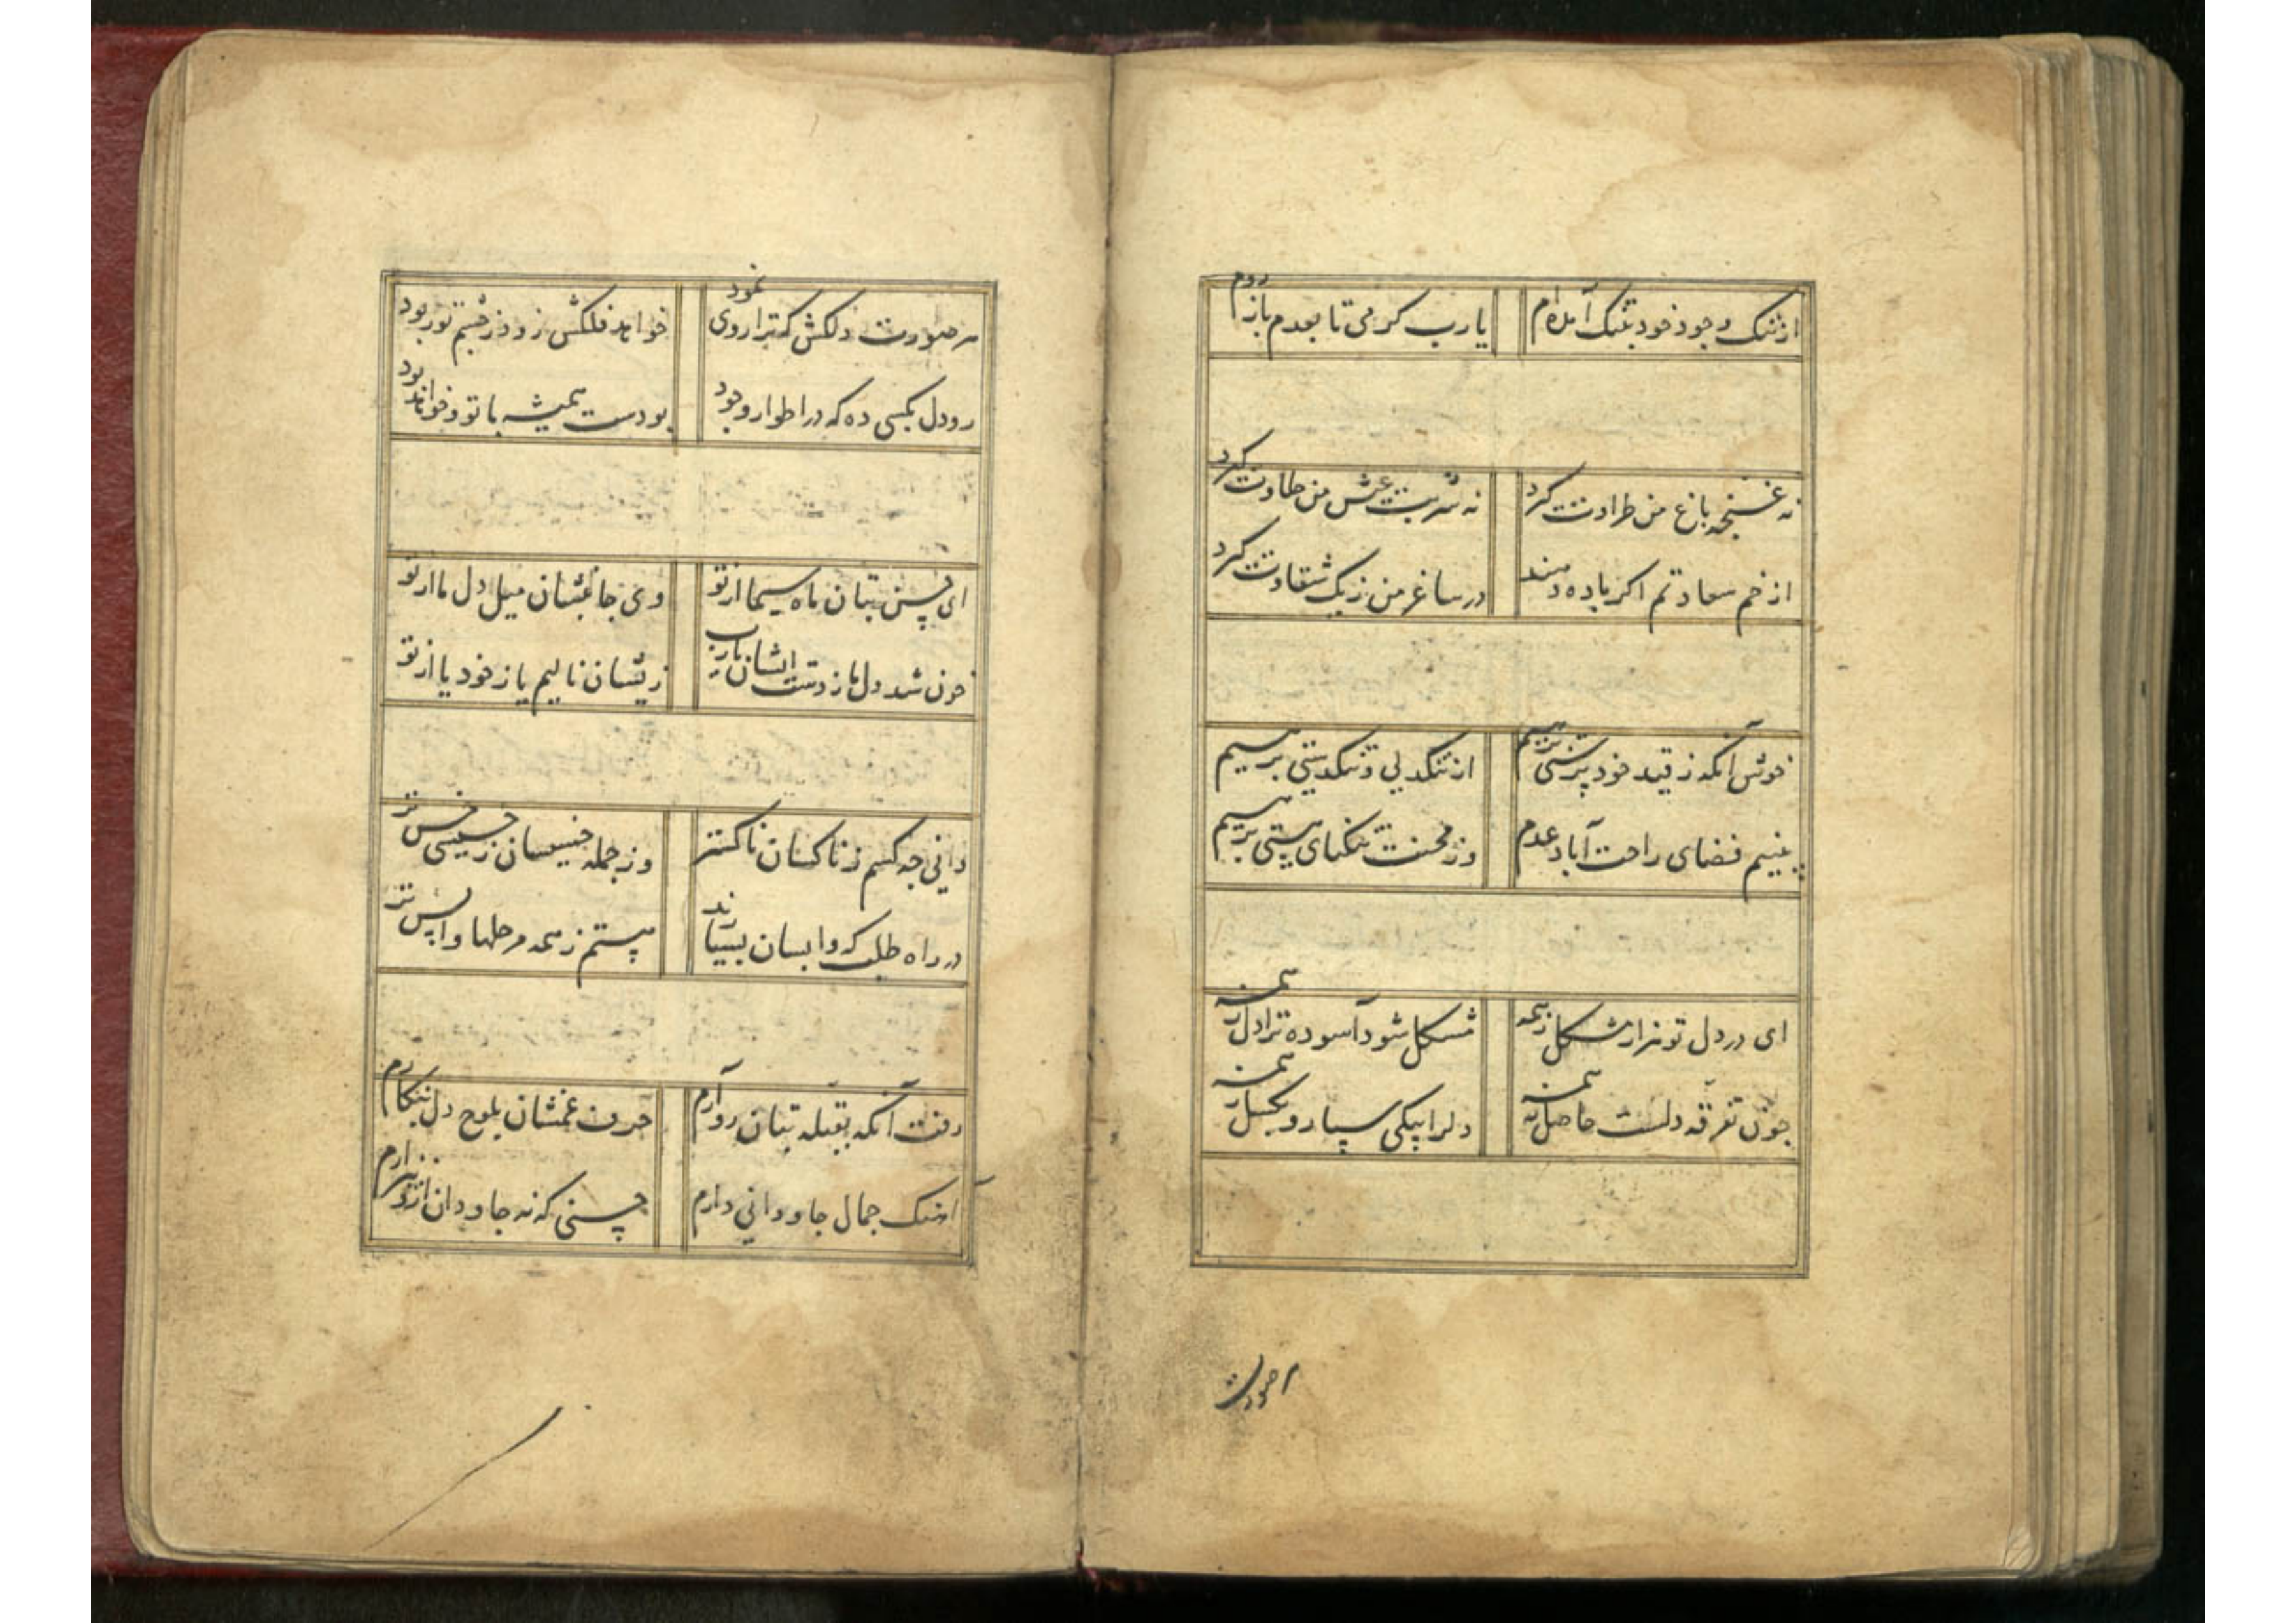 از ننک وجود خود بتنک آمده‌ام یارب کرمی تا بعدم باز روم
نه غنچه باغ من طراوت کرد نه شربت عیش من حلاوت کرد
از خم سعادتم اکر باده دهند در ساغر من رنک شقاوت کرد
خوش آنکه ز قید خود پرستی برهیم از تنکدلی و تنکدستی برهیم
بینیم فضای راحت آباد عدم وز محنت تنکنای هستی برهیم
ای در دل تو هزار مشکل ز همه مشکل شود آسوده ترا دل ز همه
چون تفرقه دلست حاصل ز همه دلرا بیکی سپار و بکسل ز همه
هر صورت
هر صورت دلکش که ترا روی نمود خواهد فلکش زود ز چشم تو ربود
رو دل بکسی ده که در اطوار وجود بودست همیشه با تو و خواهد بود
ای حسن بتان ماه سیما از تو وی جانبشان میل دل ما از تو
خون شد دل ما ز دست ایشان یارب زیشان نالیم یا ز خود یا از تو
دانی چه کسم ز ناکسان ناکستر وز جمله خسیسان ز خسیسی خس تر
در راه طلب که واپسان بسیارند هستم ز همه مرحلها واپس تر
رفت آنکه بقبله بتان رو آرم حرف غمشان بلوح دل بنکارم
آهنک جمال جاودانی دارم حسنی که نه جاودان ازو بیزارم